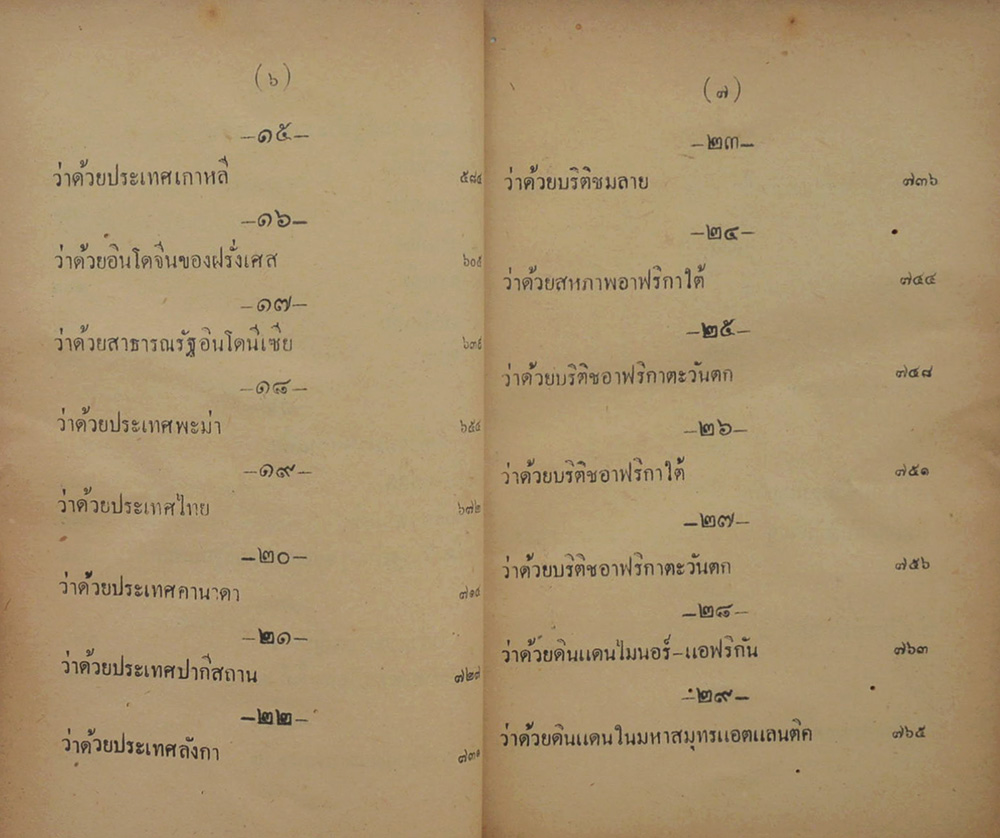 (๖)
–๑๕–
ว่าด้วยประเทศเกาหลี ๕๘๔
–๑๖–
ว่าด้วยอินโดจีนของฝรั่งเศส ๖๐๕
–๑๗–
ว่าด้วยสาธารณรัฐอินโดนีเซีย
–๑๘–
ว่าด้วยประเทศพะม่า
–๑๙–
ว่าด้วยประเทศไทย ๖๗๒
–๒๐–
ว่าด้วยประเทศคานาดา
–๒๑–
ว่าด้วยประเทศปากีสถาน
–๒๒–
ว่าด้วยประเทศลังกา ๗๓๑
(๗)
–๒๓–
ว่าด้วยบริติชมลาย ๗๓๖
–๒๔–
ว่าด้วยสหภาพอาฟริกาใต้ ๗๔๔
–๒๕–
ว่าด้วยบริติชอาฟริกาตะวันตก ๗๔๘
–๒๖–
ว่าด้วยบริติชอาฟริกาใต้ ๗๕๑
–๒๗–
ว่าด้วยบริติชอาฟริกาตะวันตก ๗๕๖
–๒๘–
ว่าด้วยดินแดนไมนอร์–แอฟริกัน ๗๖๓
–๒๙–
ว่าด้วยดินแดนในมหาสมุทรแอตแลนติค ๗๖๕